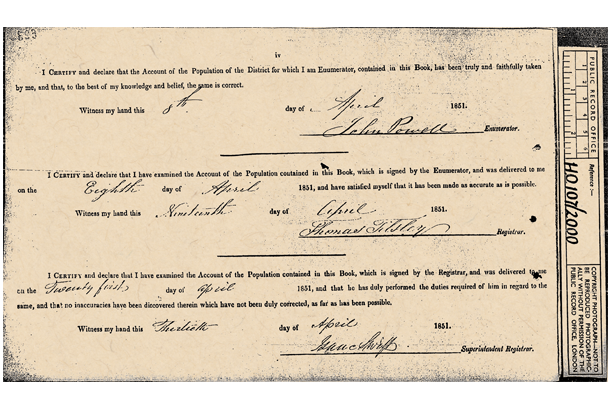 iv
I CERTIFY and declare that the Account of the Population of the District for which I am Enumerator, contained in this Book, has been truly and faithfully taken
by me, and that, to the best of my knowledge and belief, the same is correct.
Witness my hand this 8th day of April 1851.
John Powell Enumerator.
I CERTIFY and declare that I have examined the Account of the Population contained in this Book, which is signed by the Enumerator, and was delivered to me
on the Eighth day of April 1851, and have satisfied myself that it has been made as accurate as is possible.
Witness my hand this Nineteenth day of April 1851.
Thomas Tilsley Registrar.
I CERTIFY and declare that I have examined the Account of the Population contained in this Book, which is signed by the Registrar, and was delivered to me
on the Twenty first day of April 1851, and that he has duly performed the duties required of him in regard to the
same, and that no inaccuracies have been discovered therein which have not been duly corrected, as far as has been possible.
Witness my hand this Thirtieth day of April 1851.
Isaac Superintendent Registrar.
PUBLIC RECORD OFFICE
1 2 3 4 5 6
Reference :-
HO107/2000
COPYRIGHT PHOTOGRAPH—NOT TO
BE REPRODUCED PHOTOGRAPHIC-
ALLY WITHOUT PERMISSION OF THE
PUBLIC RECORD OFFICE, LONDON